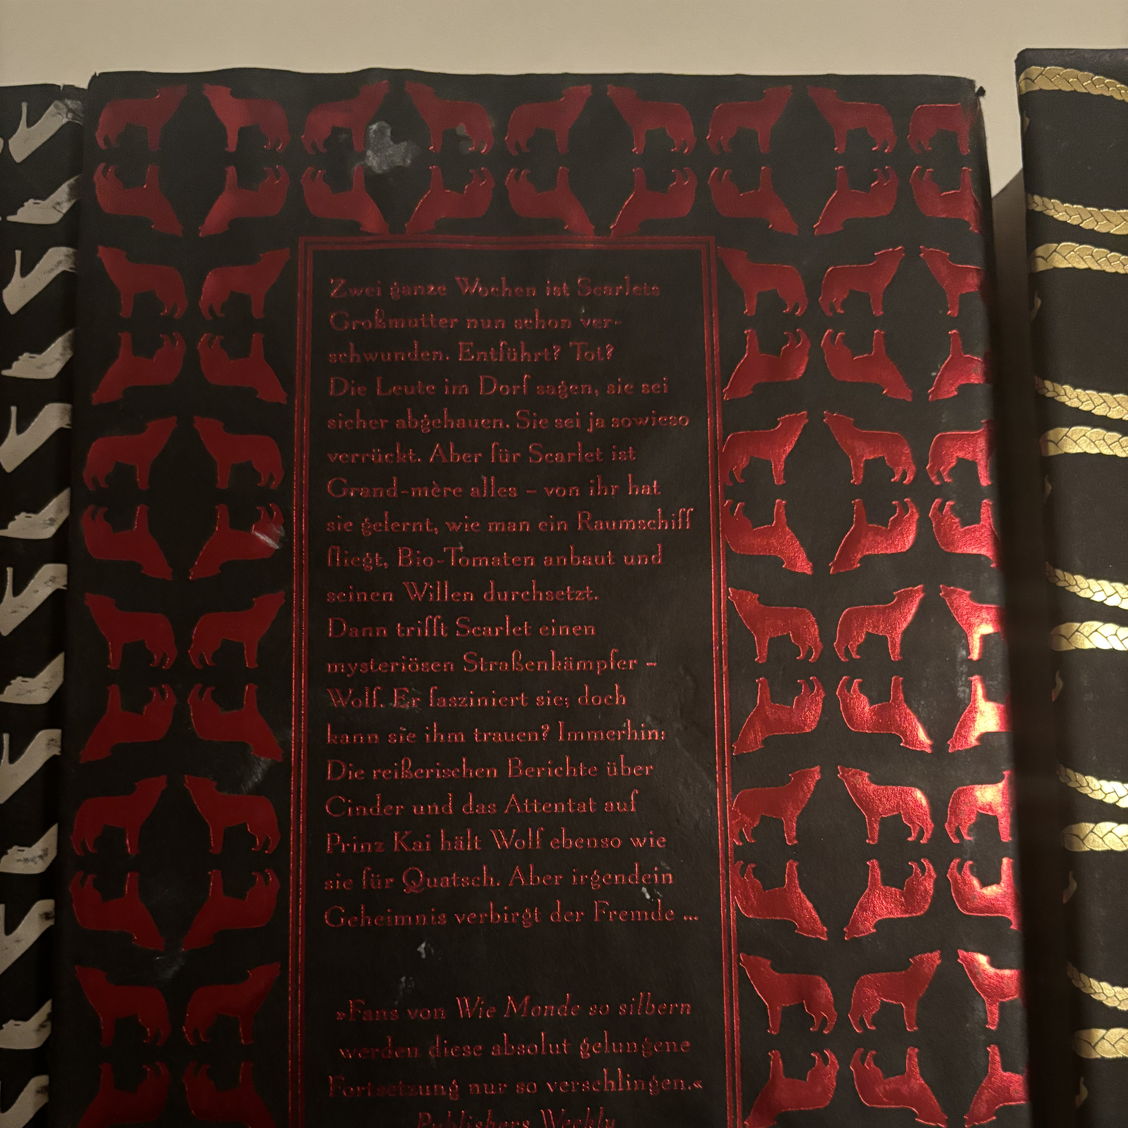 Zwei ganze Wochen ist Scarlets
Großmutter nun schon ver-
schwunden. Entführt? Tot?
Die Leute im Dorf sagen, sie sei
sicher abgehauen. Sie sei ja sowieso
verrückt. Aber für Scarlet ist
Grand-mère alles – von ihr hat
sie gelernt, wie man ein Raumschiff
fliegt, Bio-Tomaten anbaut und
seinen Willen durchsetzt.
Dann trifft Scarlet einen
mysteriösen Straßenkämpfer –
Wolf. Er fasziniert sie; doch
kann sie ihm trauen? Immerhin:
Die reißerischen Berichte über
Cinder und das Attentat auf
Prinz Kai hält Wolf ebenso wie
sie für Quatsch. Aber irgendein
Geheimnis verbirgt der Fremde ...
»Fans von Wie Monde so silbern
werden diese absolut gelungene
Fortsetzung nur so verschlingen.«
Publishers Weekly